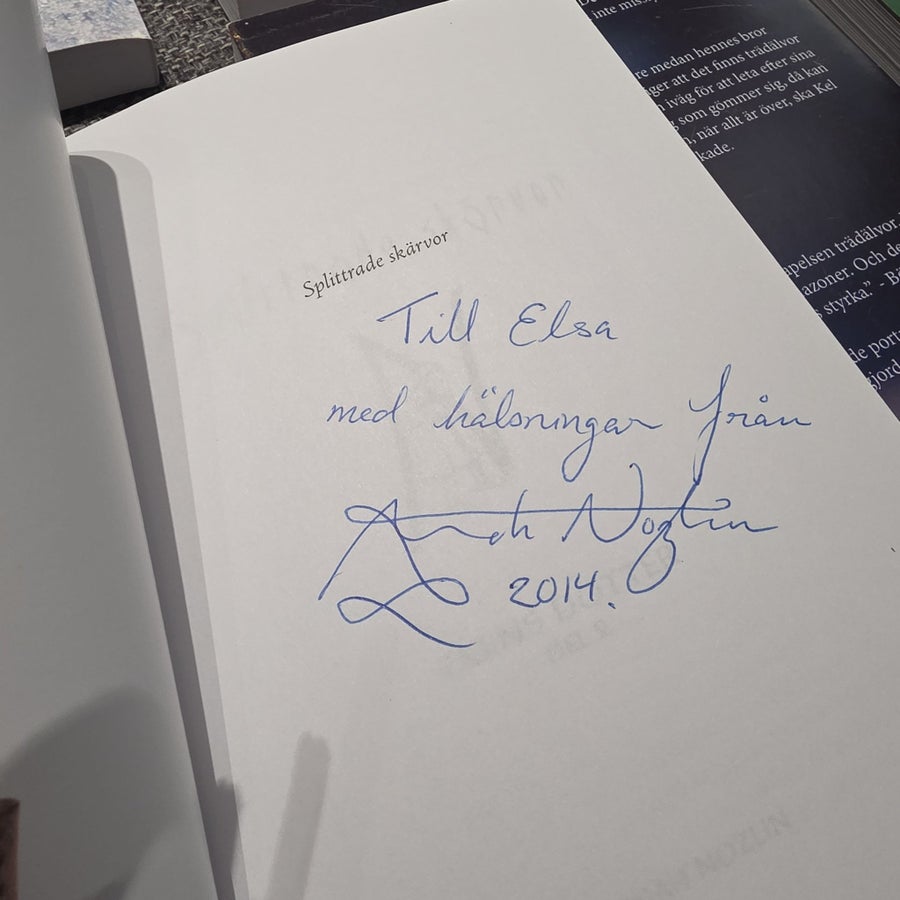 Splittrade skärvor
Till Elsa
med hälsningar från
2014.
inte
re medan hennes bror
ger att det finns trädälvor
iväg för att leta efter sina
som gömmer sig, då kan
, när allt är över, ska Kel
kade.
pelsen trädälvor
azoner. Och de
styrka." - B
de port
gjord